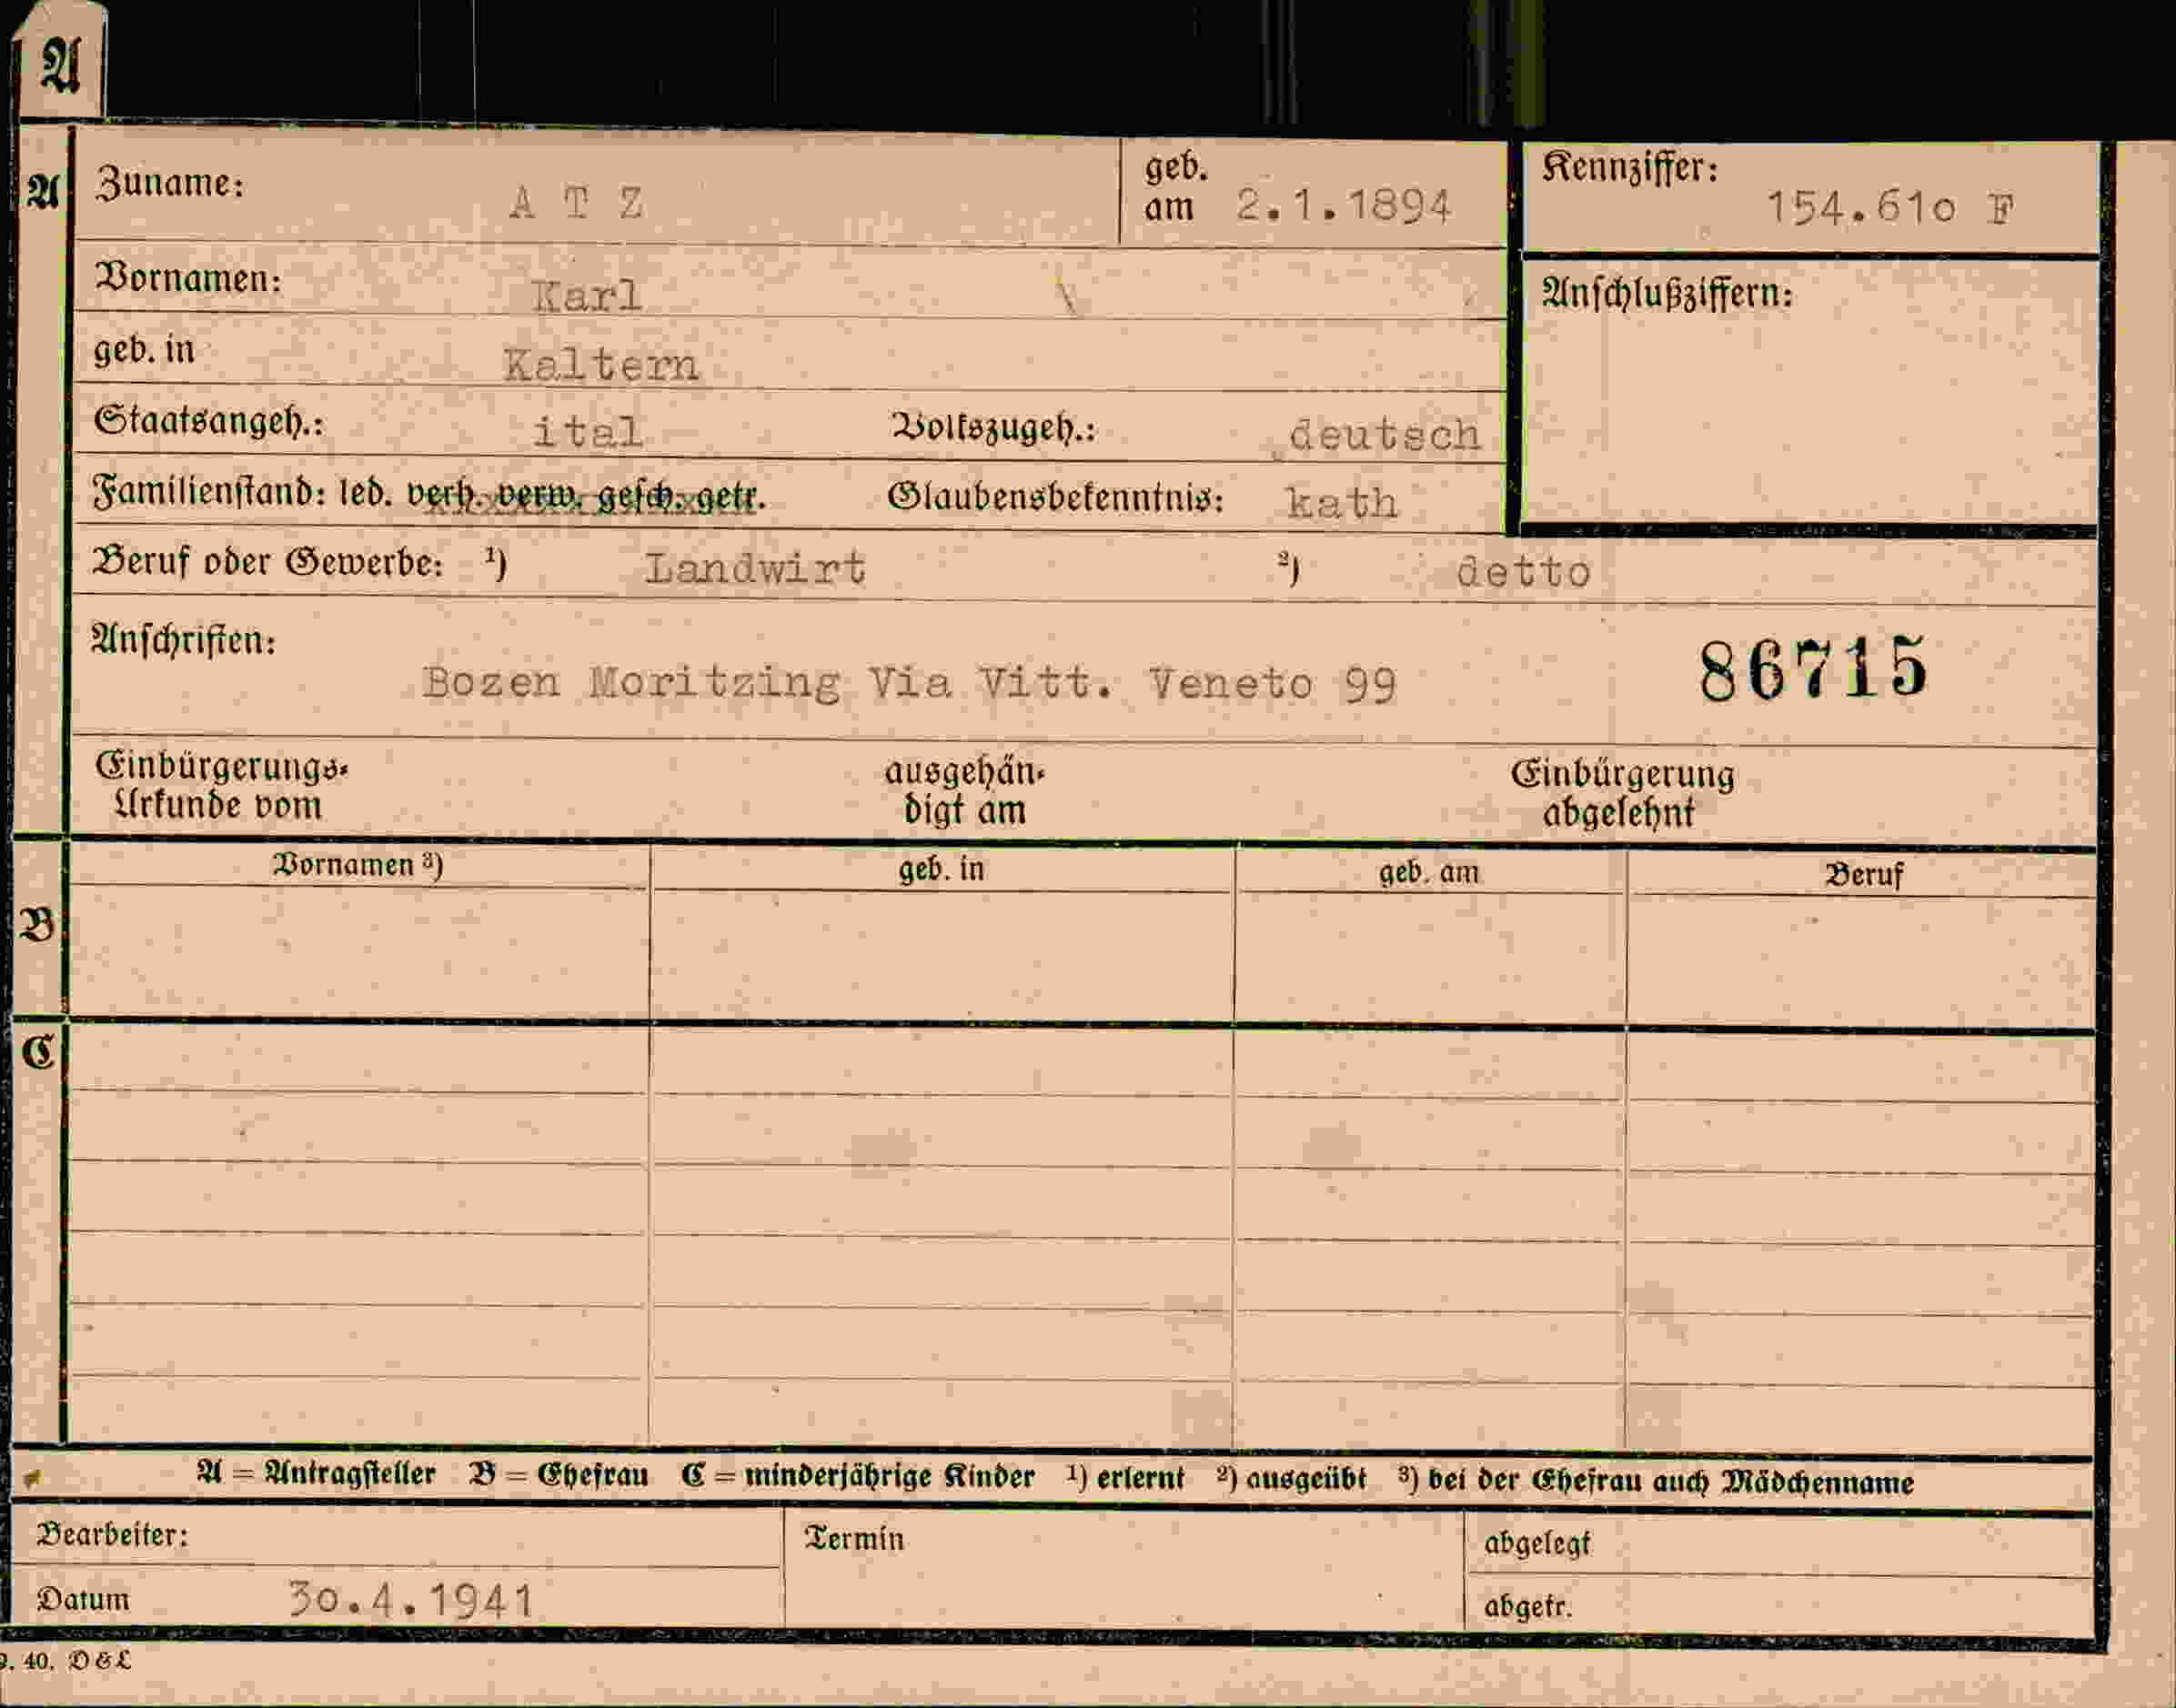 A
A Zuname: A T Z geb. am 2.1.1894 Kennziffer: 154.61o F
Vornamen: Karl \ Anschlußziffern:
geb. in Kaltern
Staatsangeh.: ital Volkszugeh.: deutsch
Familienstand: led. verh. verw. gesch. getr. Glaubensbekenntnis: kath
Beruf oder Gewerbe: ¹) Landwirt ²) detto
Anschriften:
Bozen Moritzing Via Vitt. Veneto 99 86715
Einbürgerungs- ausgehän- Einbürgerung
Urkunde vom digt am abgelehnt
Vornamen ³) geb. in geb. am Beruf
B
C
A = Antragsteller B = Ehefrau C = minderjährige Kinder ¹) erlernt ²) ausgeübt ³) bei der Ehefrau auch Mädchenname
Bearbeiter: Termin abgelegt
Datum 3o.4.1941 abgetr.
9. 40. D & L